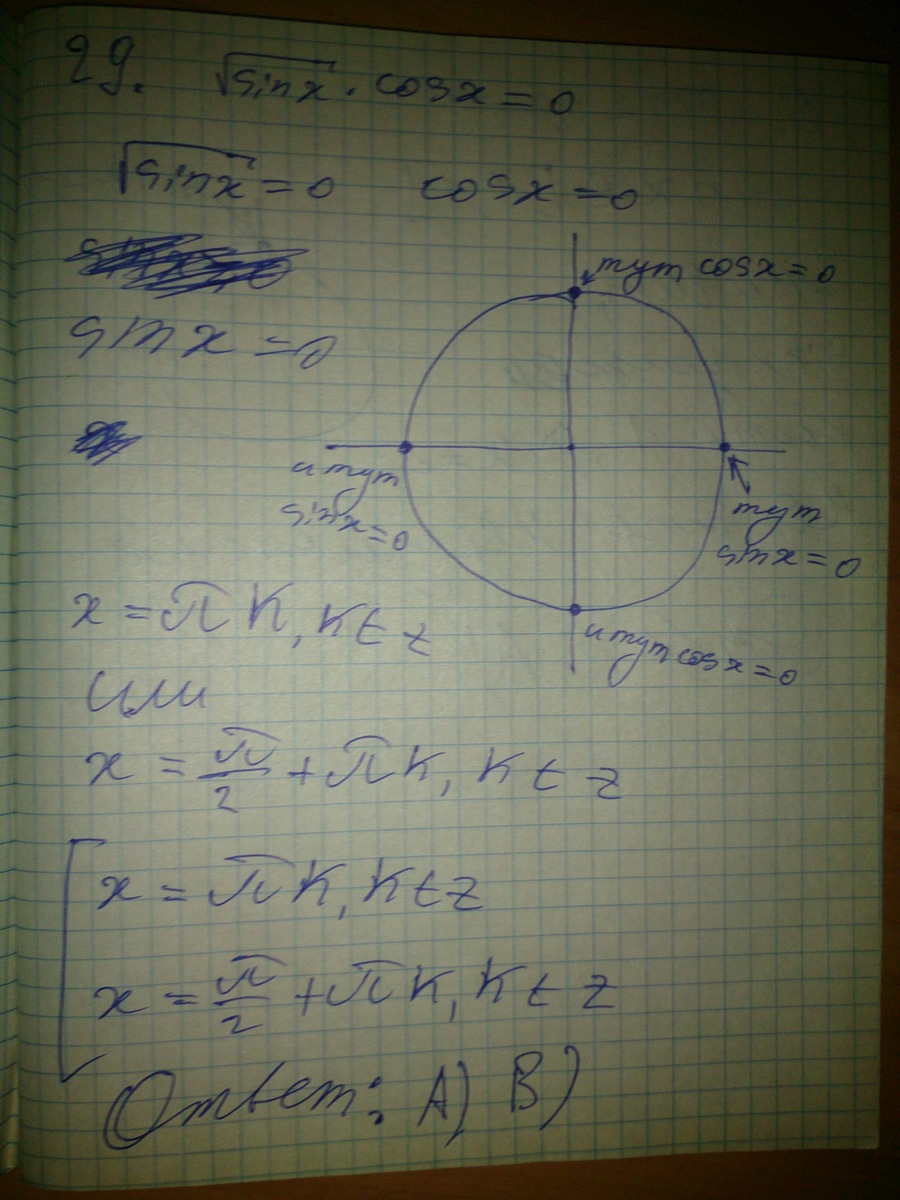 29. √sinx · cosx = 0
√sinx = 0 cosx = 0
тут cosx = 0
sinx = 0
и тут
sinx = 0
тут
sinx = 0
и тут cosx = 0
x = πK, K ∈ z
или
x = π/2 + πK, K ∈ z
[ x = πK, K ∈ z
x = π/2 + πK, K ∈ z
Ответ: A) B)